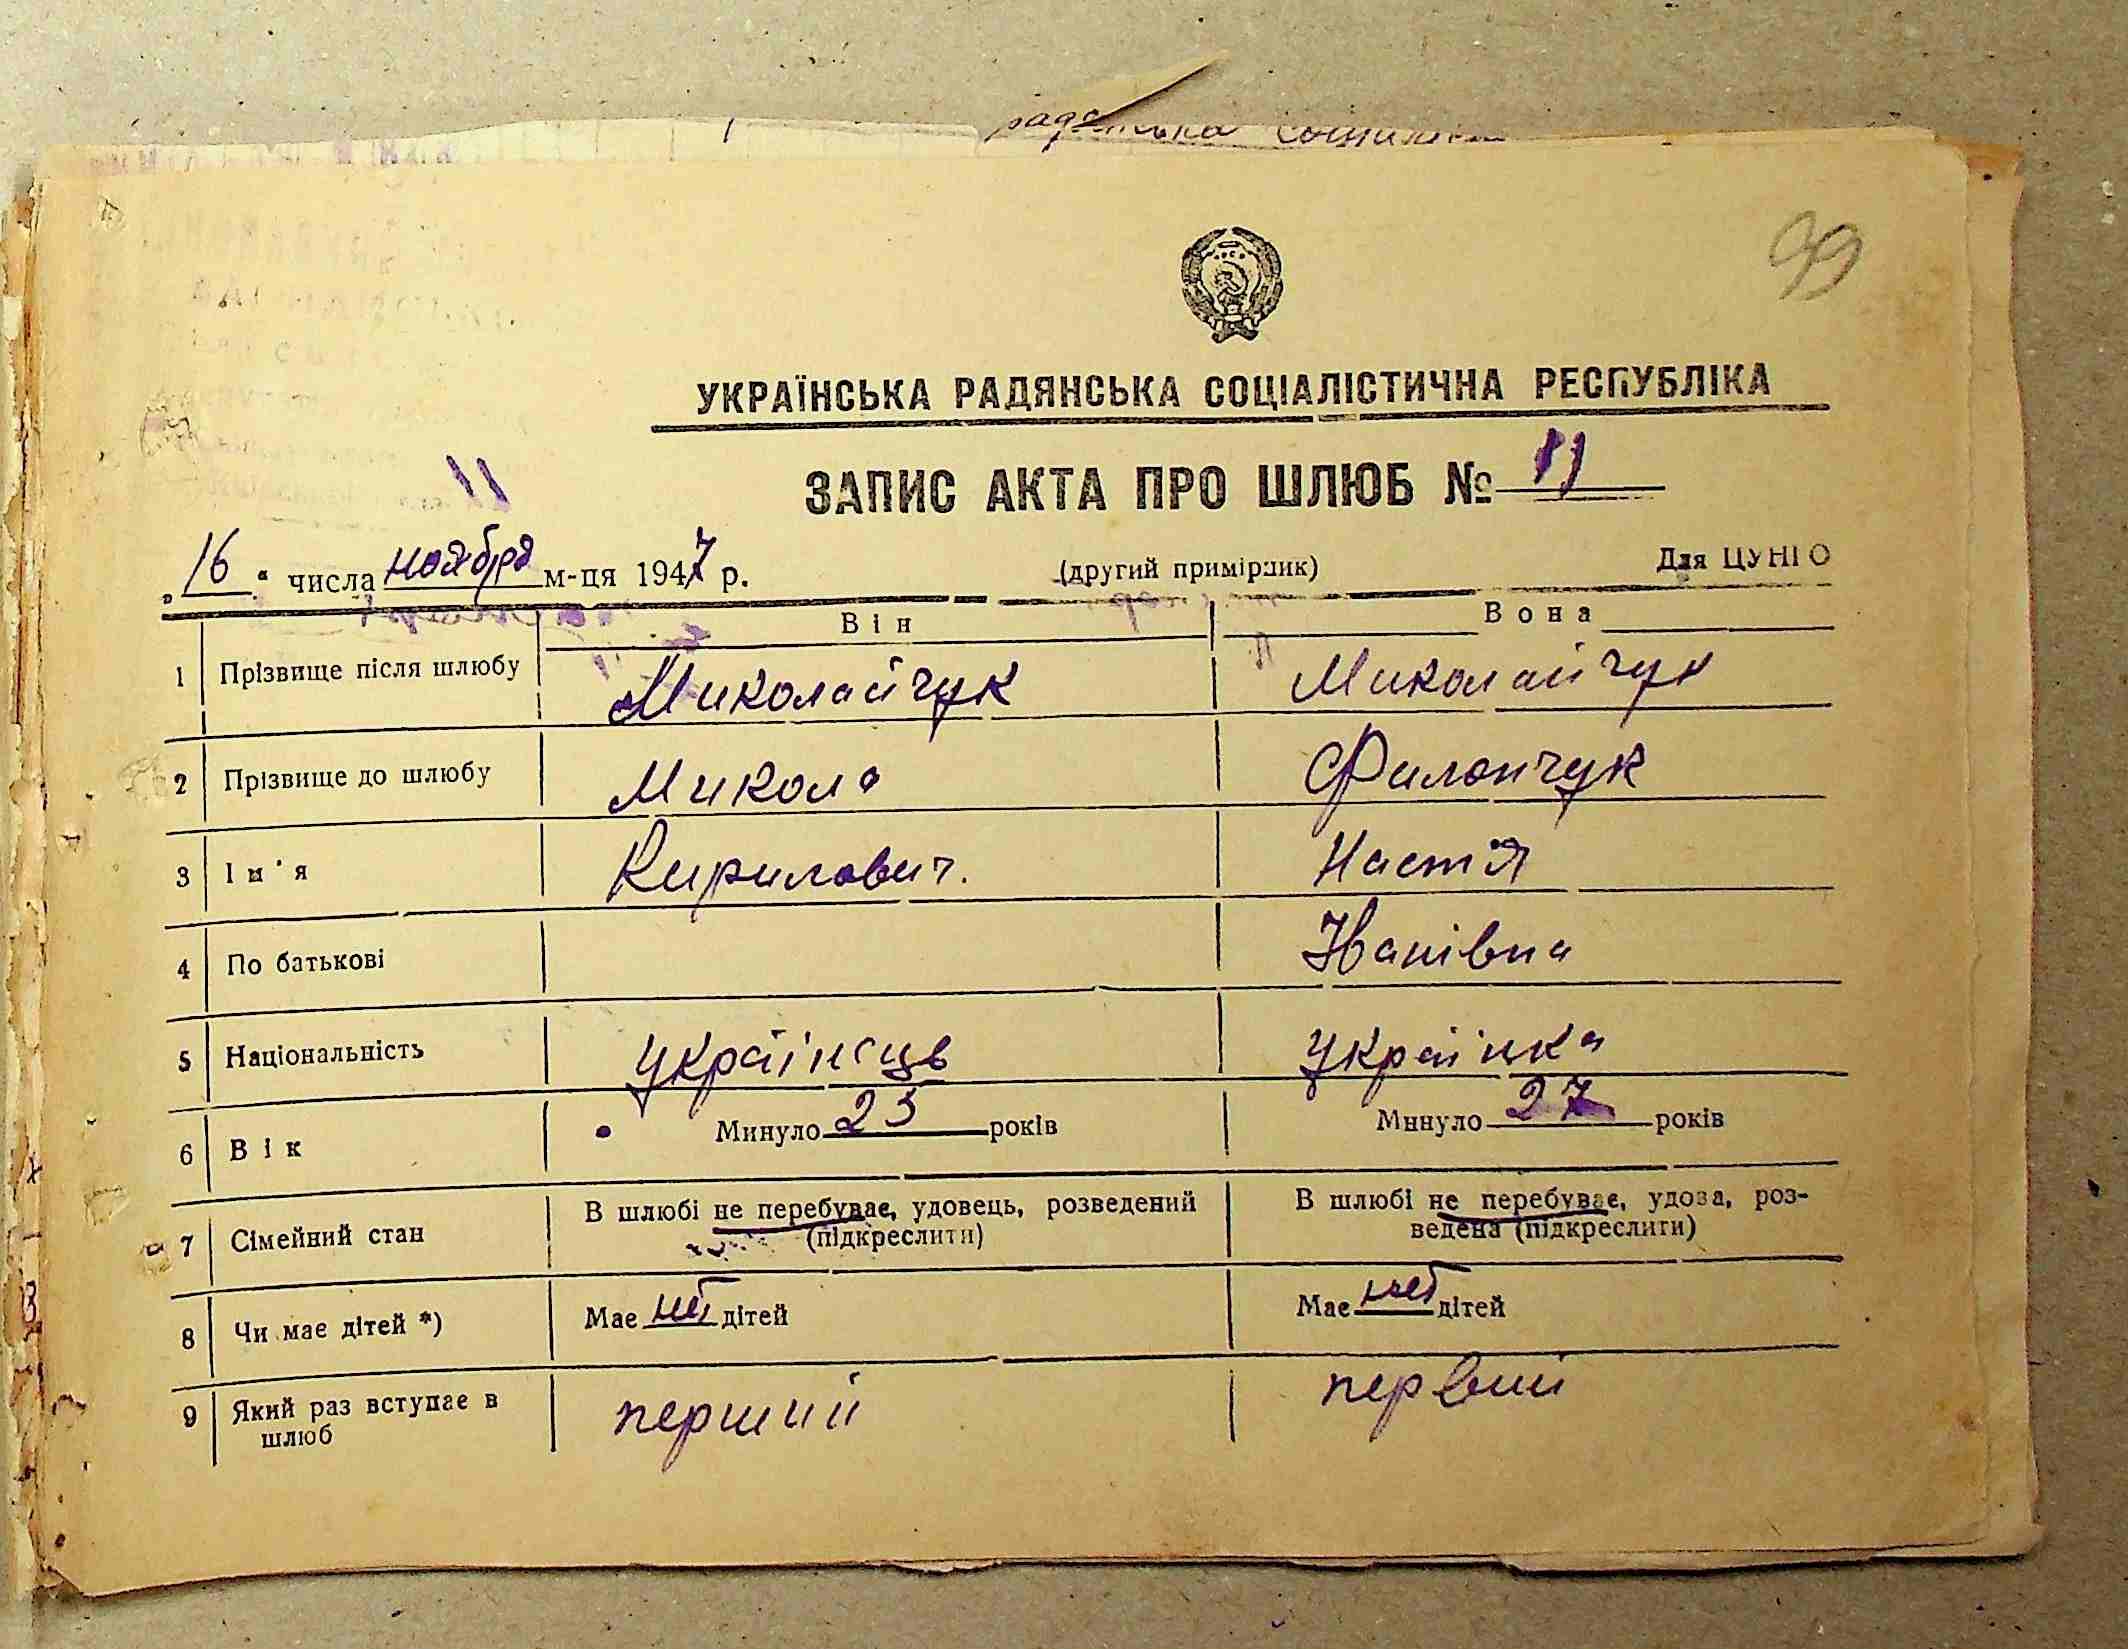 99
УКРАЇНСЬКА РАДЯНСЬКА СОЦІАЛІСТИЧНА РЕСПУБЛІКА
ЗАПИС АКТА ПРО ШЛЮБ № 11
„16“ числа ноября м-ця 1947 р. (другий примірник) Для ЦУНГО
Він Вона
1 Прізвище після шлюбу Миколайчук Миколайчук
2 Прізвище до шлюбу Микола Филончук
3 Ім'я Кирилович. Настя
4 По батькові Іванівна
5 Національність Українець Українка
6 Вік Минуло 23 років Минуло 27 років
7 Сімейний стан В шлюбі не перебуває, удовець, розведений (підкреслити) В шлюбі не перебуває, удова, роз-
ведена (підкреслити)
8 Чи має дітей *) Має нет дітей Має нет дітей
9 Який раз вступає в шлюб перший первий